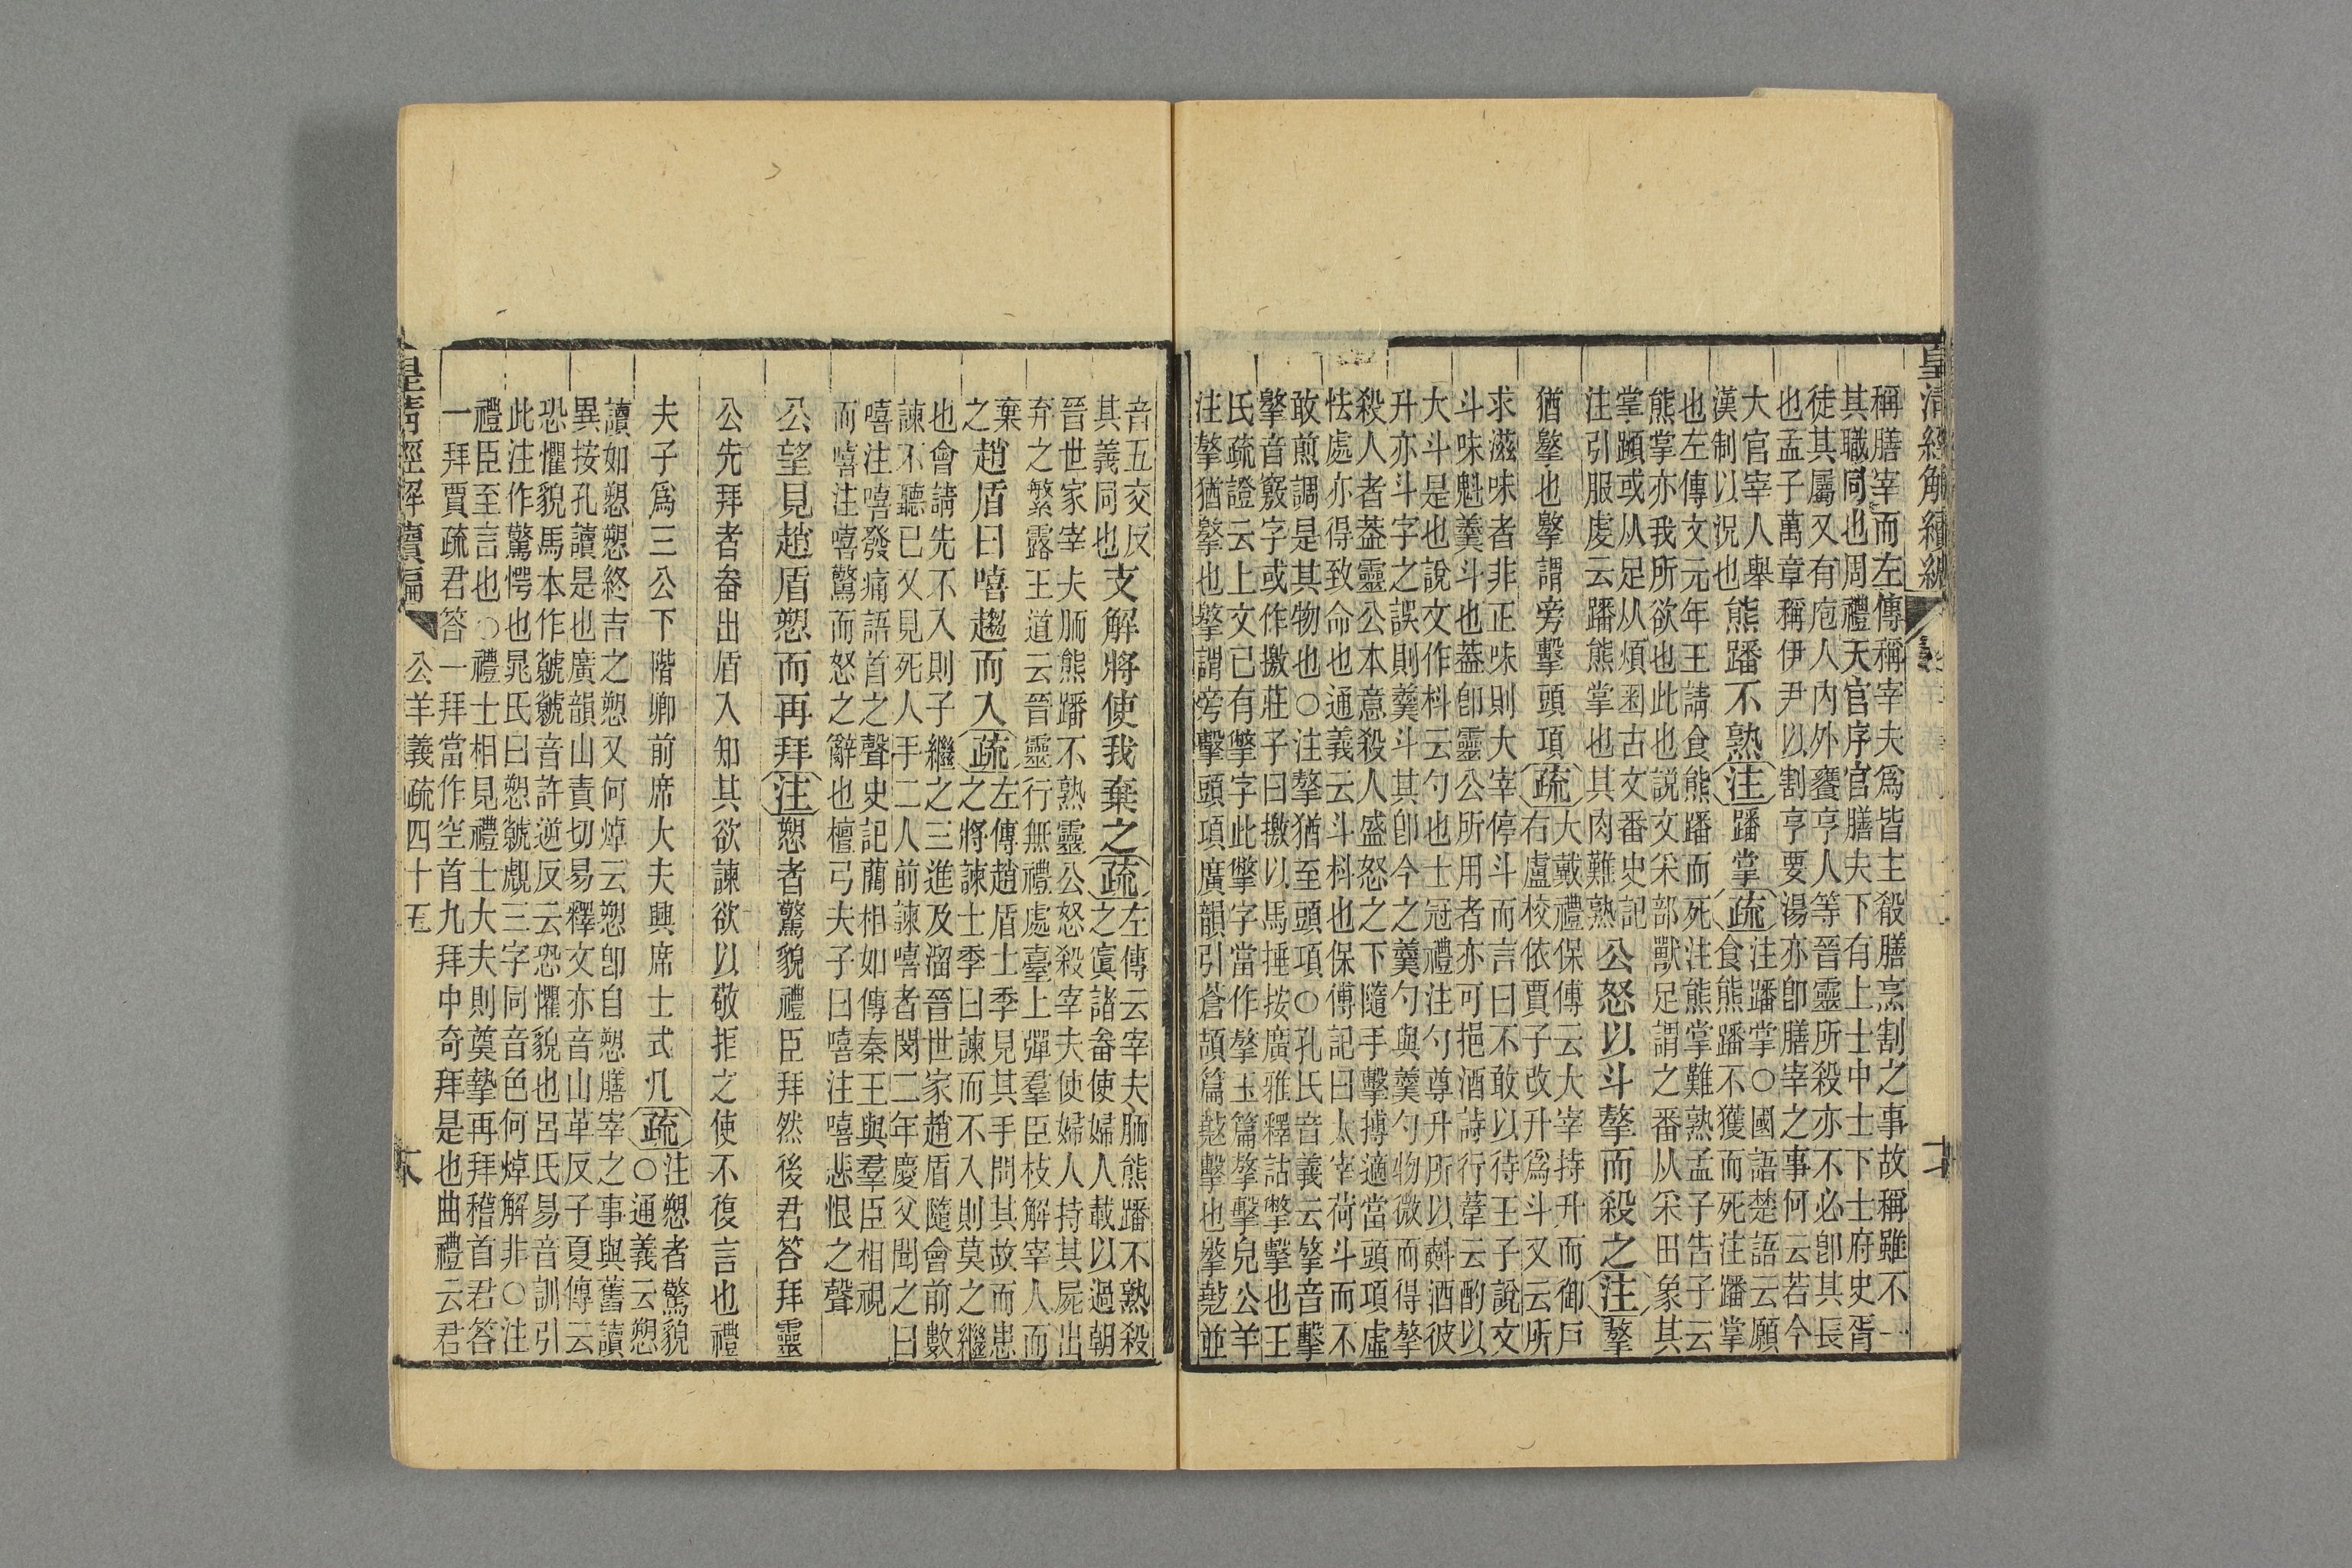 皇清經解續編
稱膳宰而左傳稱宰夫爲皆主殺膳烹割之事故稱雖不一
其職同也周禮天官序官膳夫下有上士中士下士府史胥
徒其屬又有庖人內外饔亨人等晉靈所殺亦不必卽其長
也孟子萬章稱伊尹以割亨要湯亦卽膳宰之事何云若今
大官宰人舉
漢制以況也
熊蹯不熟注蹯掌疏
注蹯掌○國語楚語云願
食熊蹯不獲而死注蹯掌
也左傳文元年王請食熊蹯而死注熊掌難熟孟子告子云
熊掌亦我所欲也此也說文釆部獸足謂之番从釆田象其
掌蹞或从足从煩𠕒古文番史記
注引服虔云蹯熊掌也其肉難熟
公怒以斗摮而殺之注摮
猶擊也摮謂旁擊頭項疏
大戴禮保傅云大宰持升而御戶
右盧校依賈子改升爲斗又云所
求滋味者非正味則大宰停斗而言曰不敢以待王子說文
斗味魁羹斗也葢卽靈公所用者亦可挹酒詩行葦云酌以
大斗是也說文作枓云勺也士冠禮注勺尊升所以㪺酒彼
升亦斗字之誤則羹斗其卽今之羹勺與羹勺物微而得摮
殺人者葢靈公本意殺人盛怒之下隨手擊搏適當頭項虛
怯處亦得致命也通義云斗枓也保傅記曰太宰荷斗而不
敢煎調是其物也○注摮猶至頭項○孔氏音義云摮音擊
摮音竅字或作撽莊子曰撽以馬捶按廣雅釋詁擊擊也王
氏疏證云上文已有擊字此擊字當作摮玉篇摮擊皃公羊
注摮猶擊也摮謂旁擊頭項廣韻引蒼頡篇㪣擊也摮㪣並
音五交反
其義同也
支解將使我棄之疏
左傳云宰夫胹熊蹯不熟殺
之寘諸畚使婦人載以過朝
晉世家宰夫胹熊蹯不熟靈公怒殺宰夫使婦人持其屍出
弃之繁露王道云晉靈行無禮處臺上彈羣臣枝解宰人而
棄
之
趙盾曰嘻趨而入疏
左傳趙盾士季見其手問其故而患
之將諫士季曰諫而不入則莫之繼
也會請先不入則子繼之三進及溜晉世家趙盾隨會前數
諫不聽已又見死人手二人前諫嘻者閔二年慶父聞之曰
嘻注嘻發痛語首之聲史記藺相如傳秦王與羣臣相視
而嘻注嘻驚而怒之辭也檀弓夫子曰嘻注嘻悲恨之聲
公望見趙盾愬而再拜注愬者驚貌禮臣拜然後君答拜靈
公先拜者畚出盾入知其欲諫欲以敬拒之使不復言也禮
夫子爲三公下階卿前席大夫興席士式几疏
注愬者驚貌
○通義云愬
讀如愬愬終吉之愬又何焯云愬卽自愬膳宰之事與舊讀
異按孔讀是也廣韻山責切易釋文亦音山革反子夏傳云
恐懼貌馬本作虩虩音許逆反云恐懼貌也呂氏易音訓引
此注作驚愕也晁氏曰愬虩覤三字同音色何焯解非○注
禮臣至言也○禮士相見禮士大夫則奠摯再拜稽首君答
一拜賈疏君答一拜當作空首九拜中奇拜是也曲禮云君
皇清經解續編
公羊義疏四十五